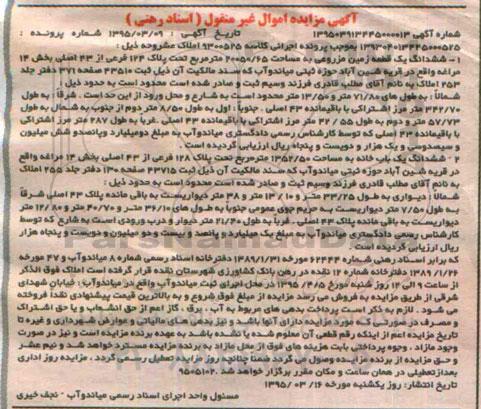 آگهی مزایده اموال غیر منقول ( اسناد رهنی )
شماره آگهی ۱۳۹۵۰۳۹۱۳۴۴۵۰۰۰۰۱۳ تاریخ آگهی : ۱۳۹۵/۰۳/۰۹ شماره پرونده :
۱۳۹۳۰۴۰۱۳۴۴۵۰۰۰۵۲۵ بموجب پرونده اجرائی کلاسه ۹۳۰۰۵۲۵ املاک مشروحه ذیل :
۱ – ششدانگ یک قطعه زمین مزروعی به مساحت ۲۰۰۵۰/۶۵ مترمربع تحت پلاک ۱۲۴ فرعی از ۴۳ اصلی بخش ۱۴
مراغه واقع در قریه شسین آباد حوزه ثبتی میاندوآب که سند مالکیت آن ذیل ثبت ۴۳۵۱۰ صفحه ۳۷۱ دفتر جلد
۲۵۳ املاک به نام آقای مطلب قادری فرزند وسیم ثبت و صادر شده است محدود است به حدود ذیل :
شمالا : به طول های ۷۱/۸۰ متر و ۱۳/۵۰ متر محدود است به شارع و محل ورود از این حد است . شرقاً : به طول
۳۴۲/۷۰ متر مرز اشتراکی با باقیمانده ۴۳ اصلی . جنوباً : اول به طول ۸/۵۰ متر دوم از جنوب به شمال به طول
۵۷/۷۳ متر و دوم به طول ۴۲/۵۵ متر مرز اشتراکی با باقیمانده ۴۳ اصلی . غرباً به طول ۲۸۷ متر مرز اشتراکی
با باقیمانده ۴۳ اصلی که توسط کارشناس رسمی دادگستری میاندوآب به مبلغ دومیلیارد وپانصدو شش میلیون
و سیصدوسی و یک هزار و دویست و پنجاه ریال ارزیابی گردیده است .
۲ – ششدانگ یک باب خانه به مساحت ۱۳۵۲/۵۰ مترمربع تحت پلاک ۱۲۸ فرعی از ۴۳ اصلی بخش ۱۴ مراغه واقع
در قریه شسین آباد حوزه ثبتی میاندوآب که سند مالکیت آن ذیل ثبت ۴۳۷۱۵ صفحه ۱۳۰ دفتر جلد ۲۵۵ املاک
به نام آقای مطلب قادری فرزند وسیم ثبت و صادر شده است محدود است به حدود ذیل :
شمالا : دیواری به طول ۳۳/۲۵ متر و ۱۰/ ۱۳ متر و ۳۸ متر دیواریست به باقی مانده پلاک ۴۳ اصلی شرقاً
به طول ۷/۵۰ متر دیواریست به حریم جوی عمومی جنوبا به طول های ۳۶/۱۰ متر و ۴۰/۷۰ متر و ۱۲/۸۰ متر
دیواریست به باقی مانده پلاک ۴۳ اصلی . غرباً به طول ۲۱/۴۰ متر دیوار و درب ورودی است به شارع که توسط
کارشناس رسمی دادگستری میاندوآب به مبلغ یک میلیارد و پانصد و بیست و دو میلیون و دویست و پنجاه هزار
ریال ارزیابی گردیده است .
که برابر اسناد رهنی شماره ۶۲۴۴۴ مورخه ۱۳۸۹/۱/۳۱ دفترخانه اسناد رسمی شماره ۸ میاندوآب و ۴۷ مورخه
۱۳۸۹/۱/۲۶ دفترخانه شماره ۱۲ نقده در رهن بانک کشاورزی شهرستان نقده قرار گرفته است املاک فوق الذکر
از ساعت ۹ الی ۱۲ روز شنبه مورخ ۱۳۹۵/۰۴/۵ در محل اجرای ثبت میاندوآب واقع در میاندوآب خیابان شهدای
شرقی از طریق مزایده به فروش می رسد مزایده از مبلغ فوق شروع و به بالاترین قیمت پیشنهادی نقدا فروخته
می شود . لازم به ذکر است پرداخت بدهی های مربوط به آب ، برق ، گاز اعم از حق انشعاب و یا حق اشتراک
و مصرف در صورتی که مورد مزایده دارای آنها باشد و نیز بدهی های مالیاتی و عوارض شهرداری و غیره تا
تاریخ مزایده اعم از اینکه رقم قطعی آن معلوم شده یا نشده باشد به عهده برنده مزایده است و نیز در صورت
وجود مازاد ، وجوه پرداختی بابت هزینه های فوق از محل مازاد به برنده مزایده مسترد خواهد شد و نیم عشر
و حق مزایده از برنده مزایده وصول می گردد ضمنا چنانچه روز مزایده تعطیل رسمی گردد ، مزایده روز اداری
بعدازتعطیلی در همان ساعت و مکان مقرر برگزار خواهد شد . ۹۵۰۵۱۰۲
تاریخ انتشار: روز یکشنبه مورخه ۱۶/ ۰۳/ ۱۳۹۵
مسئول واحد اجرای اسناد رسمی میاندوآب – نجف خیری